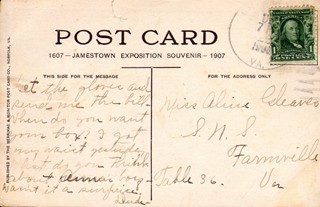 POST CARD
1607 — JAMESTOWN EXPOSITION SOUVENIR — 1907
THIS SIDE FOR THE MESSAGE
FOR THE ADDRESS ONLY
PUBLISHED BY THE BERKEBILE & MONITOR POST CARD CO., NORFOLK, VA.
Get the gloves and
send me the bill.
When do you want
your box? I got
my waist yesterday.
What do you think
about boy
Wasn't it a surprise,
Miss Alice Cleaves
S. N. S.
Farmville
Table 36. Va